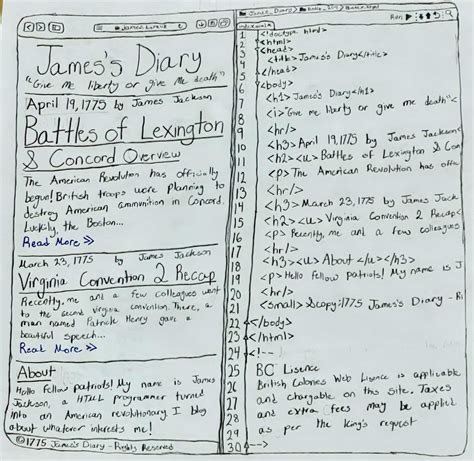 James's Diary
"Give me liberty or give me death"
April 19, 1775 by James Jackson
Battles of Lexington
& Concord Overview
The American Revolution has officially
begun! British troops were planning to
destroy American ammunition in Concord.
Luckily, the Boston...
Read More >>
March 23, 1775 by James Jackson
Virginia Convention 2 Recap
Recently, me and a few colleagues went
to the second Virginia convention. There, a
man named Patrick Henry gave a
beautiful speech...
Read More >>
About
Hello fellow patriots! My name is James
Jackson, a HTML programmer turned
into an American revolutionary. I blog
about whatever interests me!
©1775 James's Diary - Rights Reserved
Run
1 <!doctype html>
2 <html>
3 <head>
4 <title>James's Diary</title>
5 </head>
6 <body>
7 <h1>James's Diary</h1>
8 <i>"Give me liberty or give me death"<
9 <hr/>
10 <h3>April 19, 1775 by James Jackson
11 <h2><u>Battles of Lexington & Con
12 <p>The American Revolution has offi
13 <hr/>
14 <h3>March 23, 1775 by James Jack
15 <h2><u>Virginia Convention 2 Recap
16 <p>Recently, me and a few colleagues
17 <hr/>
18 <h3><u>About</u></h3>
19 <p>Hello fellow Patriots! My name is J
20 <hr/>
21 <small>&copy;1775 James's Diary - Ri
22 </body>
23 </html>
24 <!--
25 BC Lisence
26 British Colonies Web Lisence is applicable
27 and chargable on this site. Taxes
28 and extra fees may be applied
29 as per the King's request
30 -->